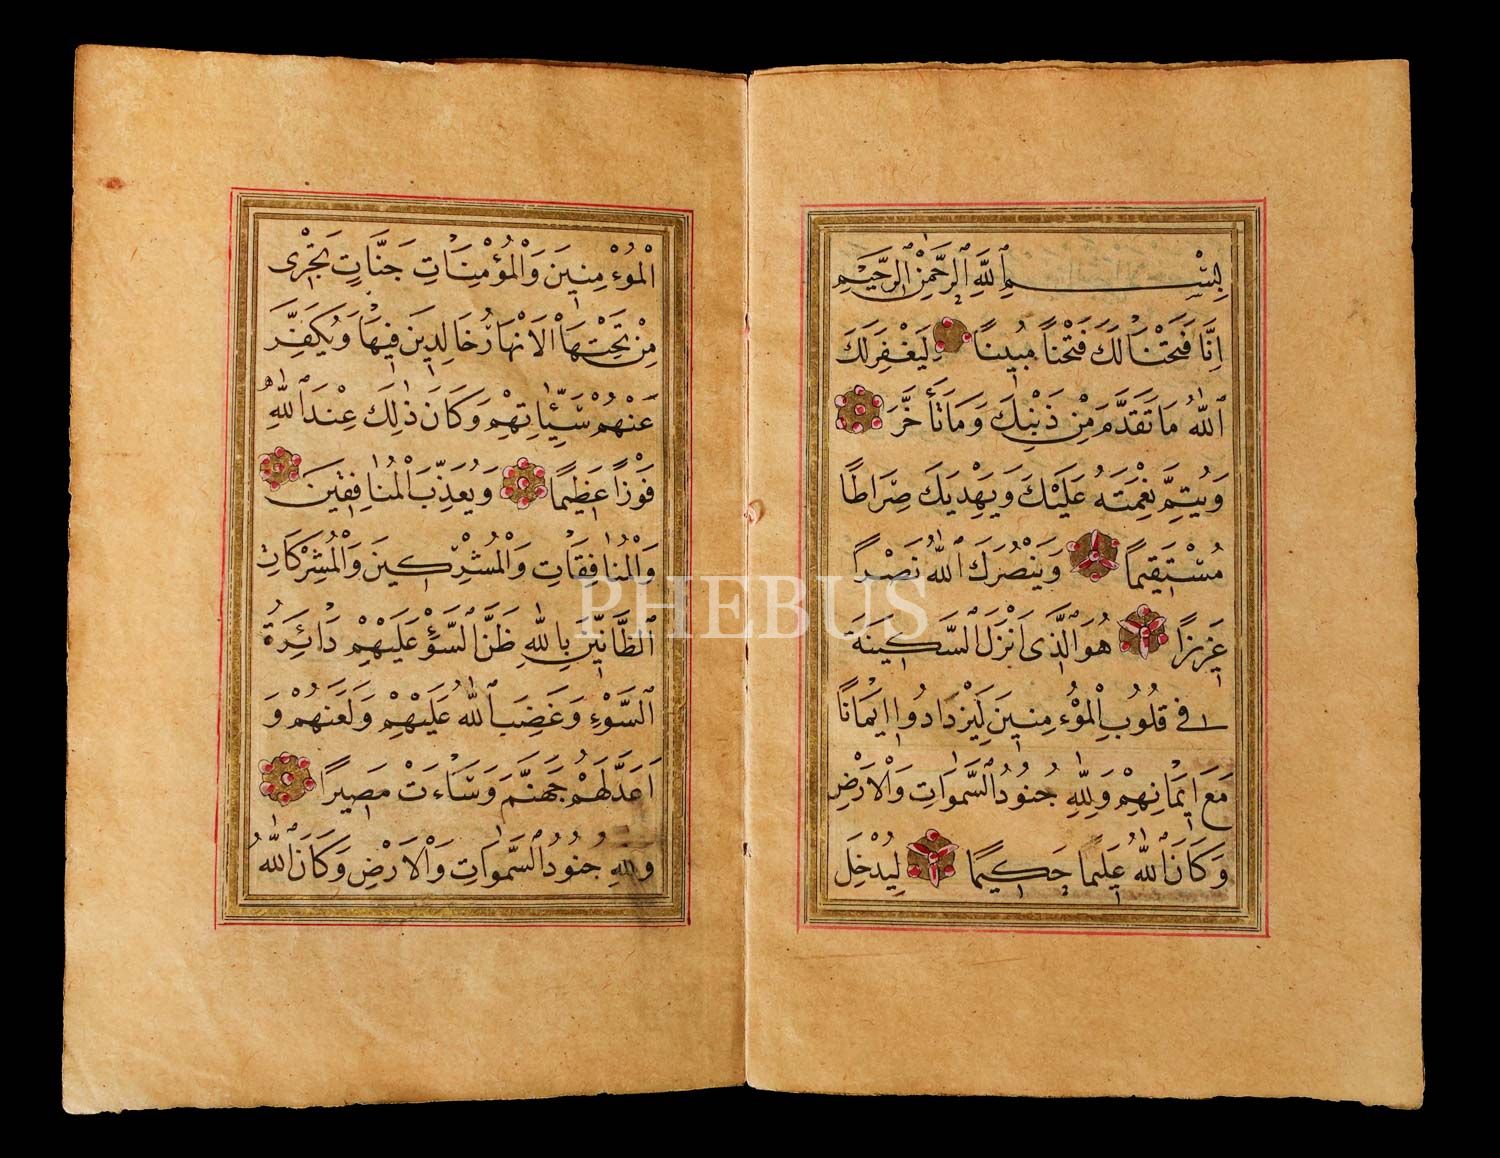 بِسْمِ ٱللَّهِ ٱلرَّحْمٰنِ ٱلرَّحِيمِ
اِنَّا فَتَحْنَا لَكَ فَتْحًا مُبِينًا لِيَغْفِرَ لَكَ
ٱللّٰهُ مَا تَقَدَّمَ مِنْ ذَنْبِكَ وَمَا تَأَخَّرَ
وَيُتِمَّ نِعْمَتَهُ عَلَيْكَ وَيَهْدِيَكَ صِرَاطًا
مُسْتَقِيمًا وَيَنْصُرَكَ ٱللّٰهُ نَصْرًا
عَزِيزًا هُوَ ٱلَّذِى اَنْزَلَ ٱلسَّكِينَةَ
فِى قُلُوبِ ٱلْمُؤْمِنِينَ لِيَزْدَادُوا اِيمَانًا
مَعَ اِيمَانِهِمْ وَلِلّٰهِ جُنُودُ ٱلسَّمٰوَاتِ وَٱلْاَرْضِ
وَكَانَ ٱللّٰهُ عَلِيمًا حَكِيمًا لِيُدْخِلَ
ٱلْمُؤْمِنِينَ وَٱلْمُؤْمِنَاتِ جَنَّاتٍ تَجْرِى
مِنْ تَحْتِهَا ٱلْاَنْهَارُ خَالِدِينَ فِيهَا وَيُكَفِّرَ
عَنْهُمْ سَيِّئَاتِهِمْ وَكَانَ ذٰلِكَ عِنْدَ ٱللّٰهِ
فَوْزًا عَظِيمًا وَيُعَذِّبَ ٱلْمُنَافِقِينَ
وَٱلْمُنَافِقَاتِ وَٱلْمُشْرِكِينَ وَٱلْمُشْرِكَاتِ
ٱلظَّانِّينَ بِٱللّٰهِ ظَنَّ ٱلسَّوْءِ عَلَيْهِمْ دَائِرَةُ
ٱلسَّوْءِ وَغَضِبَ ٱللّٰهُ عَلَيْهِمْ وَلَعَنَهُمْ وَ
اَعَدَّ لَهُمْ جَهَنَّمَ وَسَاءَتْ مَصِيرًا
وَلِلّٰهِ جُنُودُ ٱلسَّمٰوَاتِ وَٱلْاَرْضِ وَكَانَ ٱللّٰهُ
PHEBUS